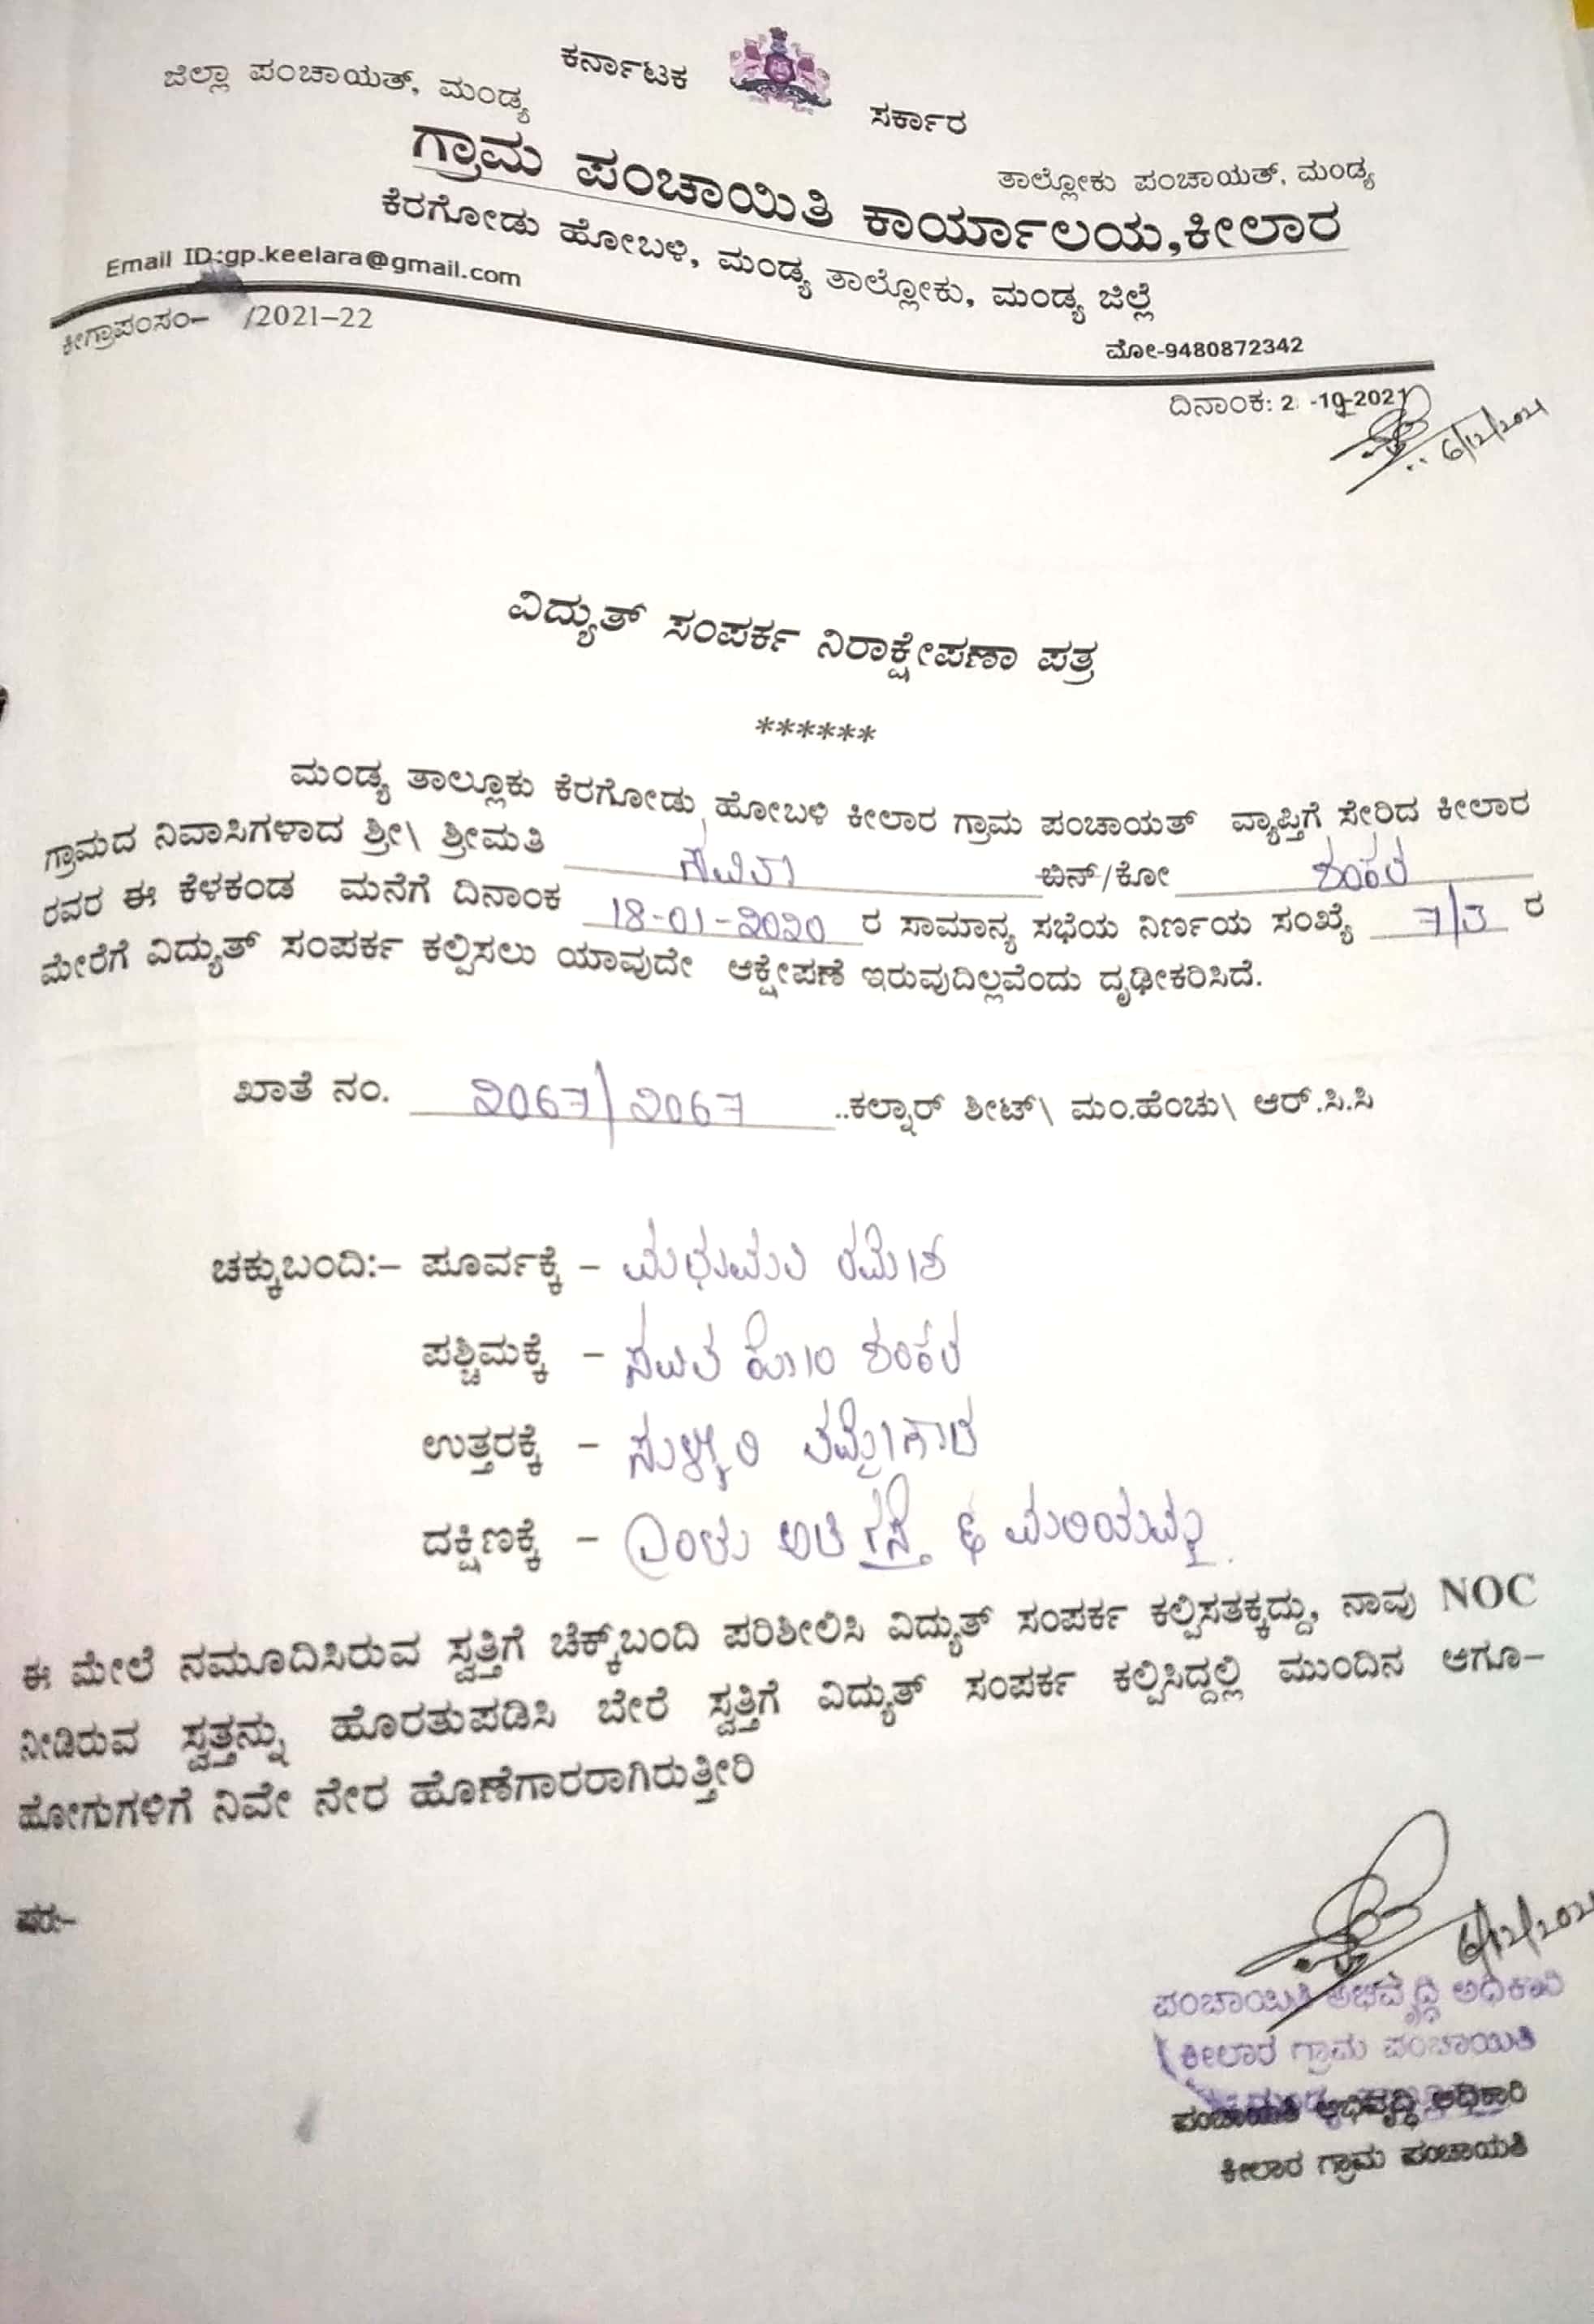 ಕರ್ನಾಟಕ ಸರ್ಕಾರ
ಜಿಲ್ಲಾ ಪಂಚಾಯತ್, ಮಂಡ್ಯ
ತಾಲ್ಲೋಕು ಪಂಚಾಯತ್, ಮಂಡ್ಯ
ಗ್ರಾಮ ಪಂಚಾಯಿತಿ ಕಾರ್ಯಾಲಯ,ಕೀಲಾರ
ಕೆರಗೋಡು ಹೋಬಳಿ, ಮಂಡ್ಯ ತಾಲ್ಲೋಕು, ಮಂಡ್ಯ ಜಿಲ್ಲೆ
Email ID:gp.keelara@gmail.com
ಮೋ-9480872342
ಕೀಗ್ರಾಪಂಸಂ– /2021–22
ದಿನಾಂಕ: 2 -10-2021
6/12/2021
ವಿದ್ಯುತ್ ಸಂಪರ್ಕ ನಿರಾಕ್ಷೇಪಣಾ ಪತ್ರ
******
ಮಂಡ್ಯ ತಾಲ್ಲೂಕು ಕೆರಗೋಡು ಹೋಬಳಿ ಕೀಲಾರ ಗ್ರಾಮ ಪಂಚಾಯತ್ ವ್ಯಾಪ್ತಿಗೆ ಸೇರಿದ ಕೀಲಾರ
ಗ್ರಾಮದ ನಿವಾಸಿಗಳಾದ ಶ್ರೀ\ ಶ್ರೀಮತಿ ಬಿನ್/ಕೋ ಶಂಕರ
ರವರ ಈ ಕೆಳಕಂಡ ಮನೆಗೆ ದಿನಾಂಕ 18-01-2020 ರ ಸಾಮಾನ್ಯ ಸಭೆಯ ನಿರ್ಣಯ ಸಂಖ್ಯೆ 7/3 ರ
ಮೇರೆಗೆ ವಿದ್ಯುತ್ ಸಂಪರ್ಕ ಕಲ್ಪಿಸಲು ಯಾವುದೇ ಆಕ್ಷೇಪಣೆ ಇರುವುದಿಲ್ಲವೆಂದು ದೃಢೀಕರಿಸಿದೆ.
ಖಾತೆ ನಂ. 2067/2067 ..ಕಲ್ನಾರ್ ಶೀಟ್\ ಮಂ.ಹೆಂಚು\ ಆರ್.ಸಿ.ಸಿ
ಚಕ್ಕುಬಂದಿ:– ಪೂರ್ವಕ್ಕೆ – ರಮೇಶ
ಪಶ್ಚಿಮಕ್ಕೆ – ಶಂಕರ
ಉತ್ತರಕ್ಕೆ –
ದಕ್ಷಿಣಕ್ಕೆ – ರಸ್ತೆ & ಮರಿಯಮ್ಮ
ಈ ಮೇಲೆ ನಮೂದಿಸಿರುವ ಸ್ವತ್ತಿಗೆ ಚೆಕ್ಕ್‌ಬಂದಿ ಪರಿಶೀಲಿಸಿ ವಿದ್ಯುತ್ ಸಂಪರ್ಕ ಕಲ್ಪಿಸತಕ್ಕದ್ದು, ನಾವು NOC
ನೀಡಿರುವ ಸ್ವತ್ತನ್ನು ಹೊರತುಪಡಿಸಿ ಬೇರೆ ಸ್ವತ್ತಿಗೆ ವಿದ್ಯುತ್ ಸಂಪರ್ಕ ಕಲ್ಪಿಸಿದ್ದಲ್ಲಿ ಮುಂದಿನ ಆಗೂ–
ಹೋಗುಗಳಿಗೆ ನಿವೇ ನೇರ ಹೊಣೆಗಾರರಾಗಿರುತ್ತೀರಿ
6/12/2021
ಪಂಚಾಯಿತಿ ಅಭಿವೃದ್ಧಿ ಅಧಿಕಾರಿ
ಕೀಲಾರ ಗ್ರಾಮ ಪಂಚಾಯಿತಿ
ಪಂಚಾಯತಿ ಅಭಿವೃದ್ಧಿ ಅಧಿಕಾರಿ
ಕೀಲಾರ ಗ್ರಾಮ ಪಂಚಾಯತಿ